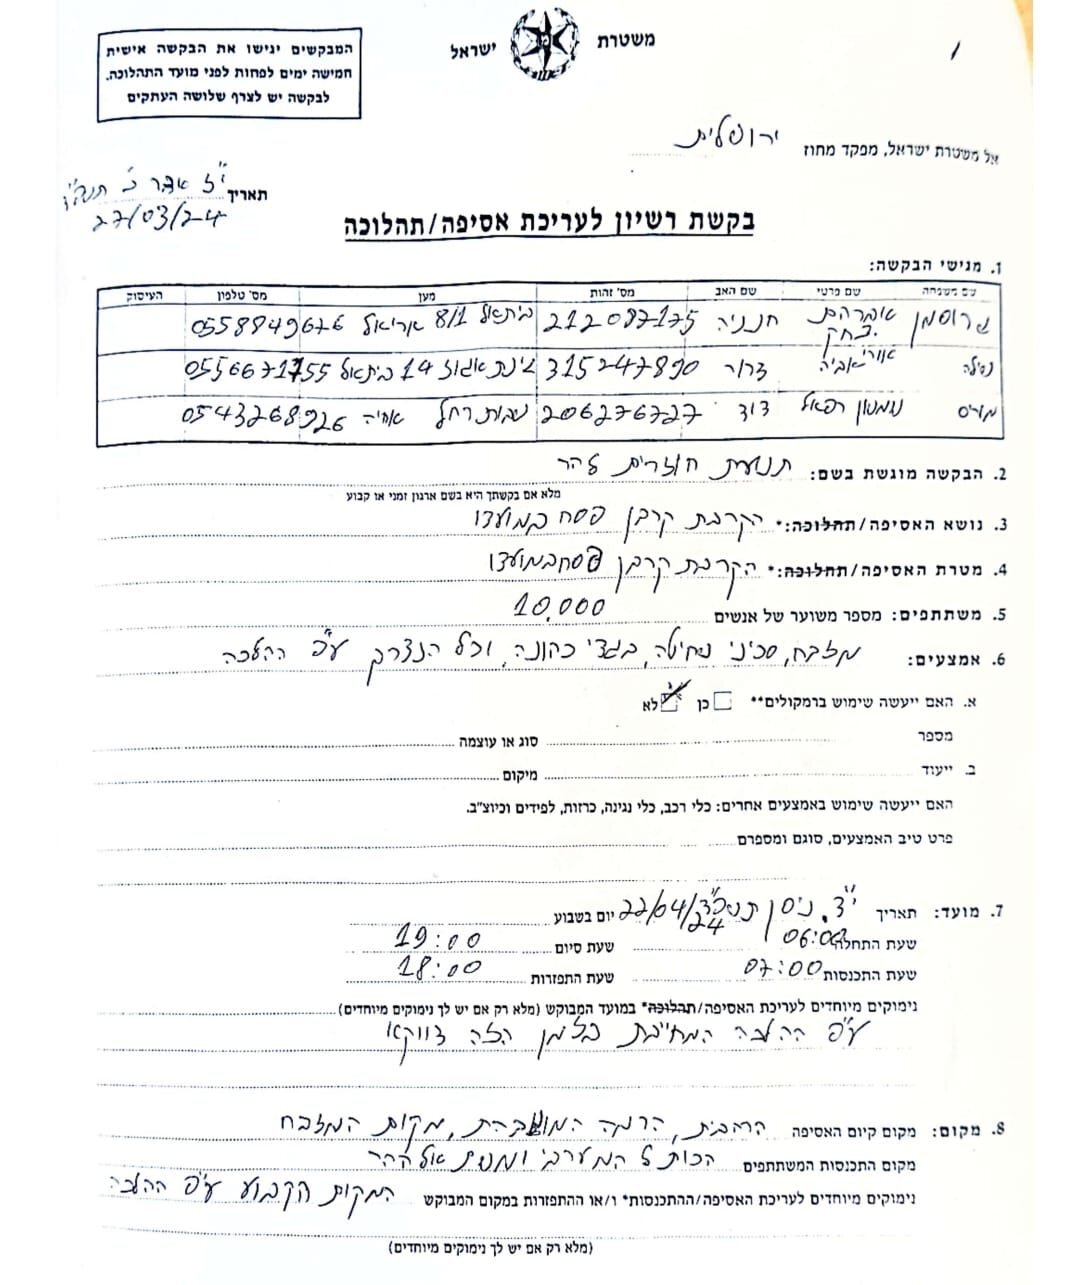 המבקשים יגישו את הבקשה אישית
חמישה ימים לפחות לפני מועד התהלוכה.
לבקשה יש לצרף שלושה העתקים
משטרת ישראל
אל משטרת ישראל, מפקד מחוז ירושלים
תאריך י"ז אדר ב' תשפ"ד
27/03/24
בקשת רשיון לעריכת אסיפה/תהלוכה
1. מגישי הבקשה:
שם משפחה שם פרטי שם האב מס' זהות מען מס' טלפון העיסוק
גרוסמן אברהם יצחק חנניה 212087175 בית אל 8/1 אריאל 0558849676
אורי אביה דרור 315247890 גינת אגוז 14 בית אל 0556671755
שמעון רפאל דוד 206276727 שבות רחל 0543268926
2. הבקשה מוגשת בשם: תנועת חוזרים להר
מלא אם בקשתך היא בשם ארגון זמני או קבוע
3. נושא האסיפה/תהלוכה:* הקרבת קרבן פסח במועדו
4. מטרת האסיפה/תהלוכה:* הקרבת קרבן פסח במועדו
5. משתתפים: מספר משוער של אנשים 10,000
6. אמצעים: מזבח, סכיני שחיטה, בגדי כהונה, וכל הנצרך ע"פ ההלכה
א. האם ייעשה שימוש ברמקולים** כן לא
מספר סוג או עוצמה
ב. ייעוד מיקום
האם ייעשה שימוש באמצעים אחרים: כלי רכב, כלי נגינה, כרזות, לפידים וכיוצ"ב.
פרט טיב האמצעים, סוגם ומספרם
7. מועד: תאריך י"ד ניסן תשפ"ד 22/04/24 יום בשבוע
שעת התחלה 06:00 שעת סיום 19:00
שעת התכנסות 07:00 שעת התפזרות 18:00
נימוקים מיוחדים לעריכת האסיפה/תהלוכה* במועד המבוקש (מלא רק אם יש לך נימוקים מיוחדים)
ע"פ ההלכה המחייבת בזמן הזה דווקא
8. מקום: מקום קיום האסיפה הר הבית, הרמה המוגבהת, מקום המזבח
מקום התכנסות המשתתפים הכותל המערבי ומשם אל ההר
נימוקים מיוחדים לעריכת האסיפה/ההתכנסות* ו/או ההתפזרות במקום המבוקש המקום הקבוע ע"פ ההלכה
(מלא רק אם יש לך נימוקים מיוחדים)